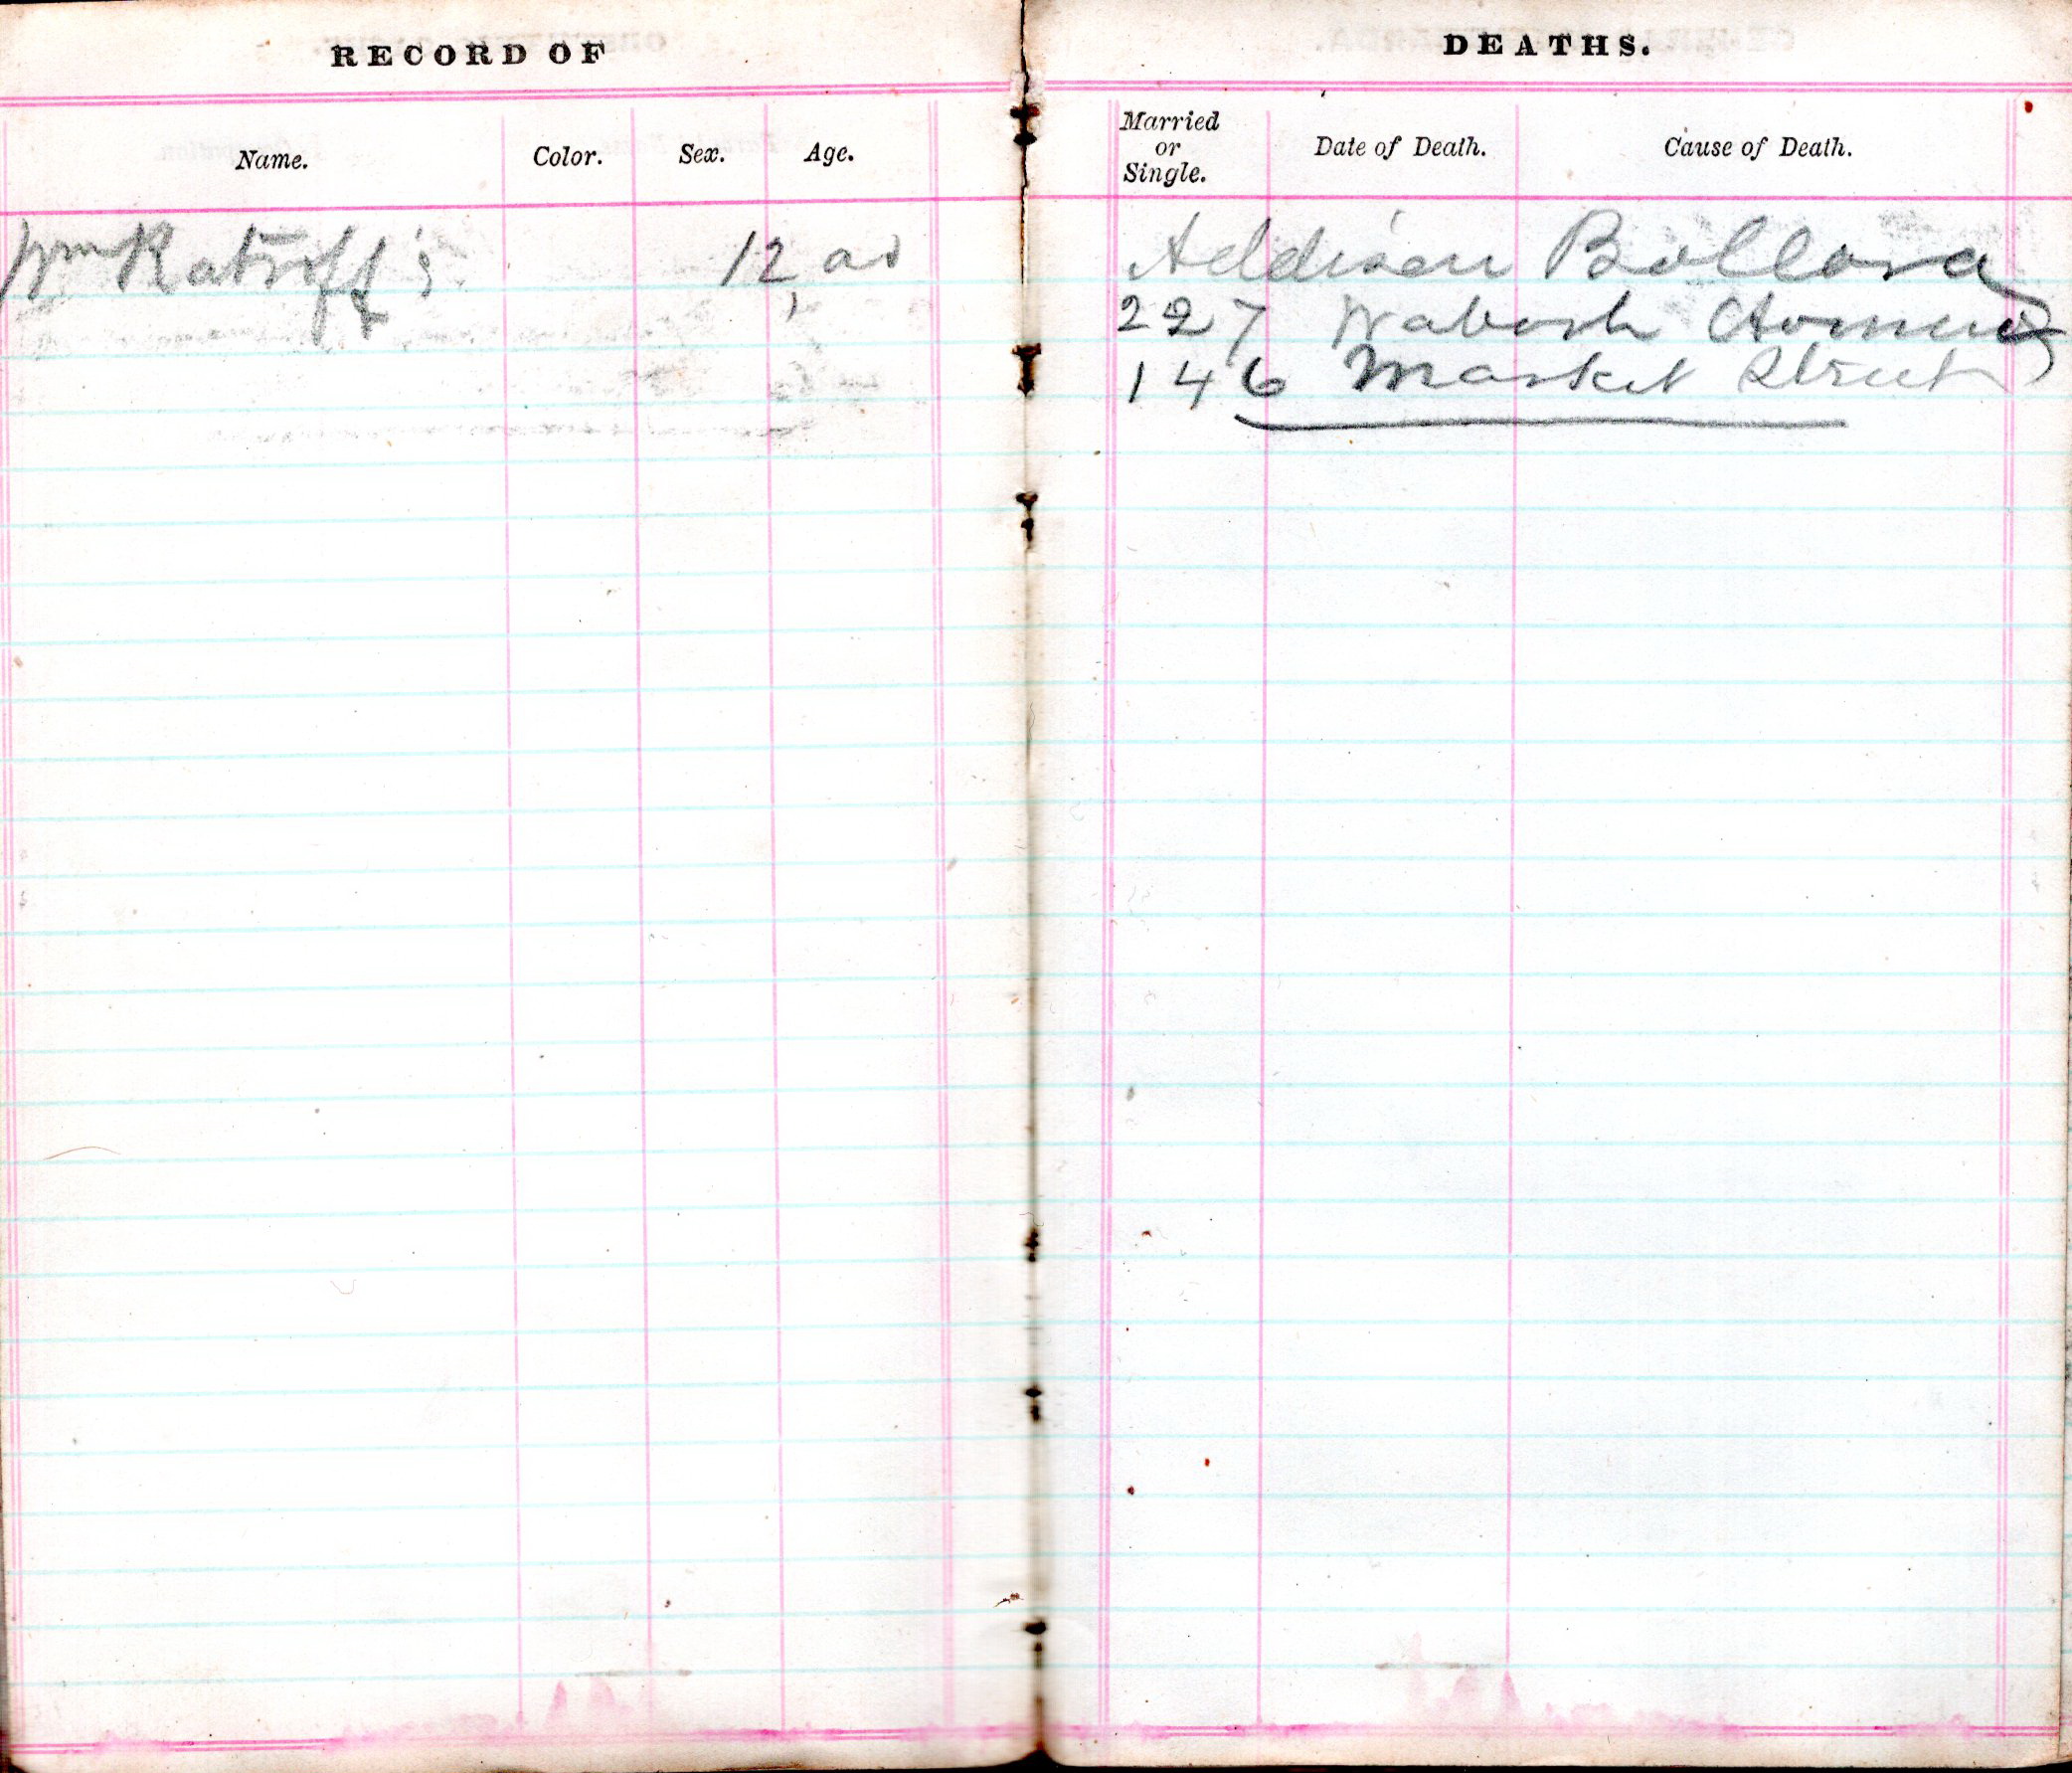 RECORD OF
Name. Color. Sex. Age.
Wm Ratroff's 12,00
DEATHS.
Married or Single. Date of Death. Cause of Death.
Addison Ballard
227 Wabash Avenue
146 Market Street